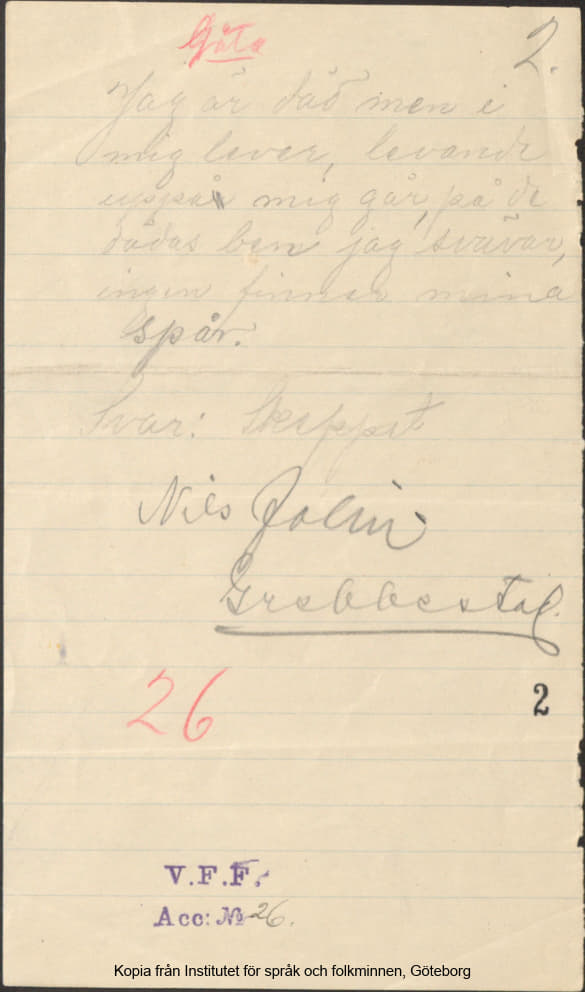 Gåta
2.
Jag är död men i
mig lever, levande
uppå mig går, på de
dödas ben jag svävar,
ingen finner mina
spår.
Svar: Skeppet
Nils Jolin
Grebbestad.
26
2
V.F.F.
Acc: № 26.
Kopia från Institutet för språk och folkminnen, Göteborg